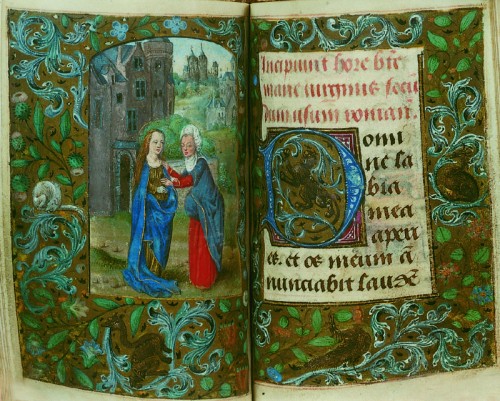 Incipiunt hore bte
marie virginis secu
dum usum roman.
Domi
ne la
bia
mea
aperi
es. et os meum a
nunciabit laude